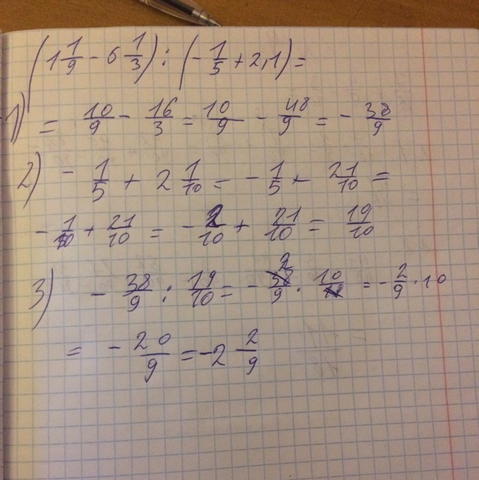 (1 1/9 - 6 1/3) : (- 1/5 + 2,1) =
1) = 10/9 - 16/3 = 10/9 - 48/9 = - 38/9
2) - 1/5 + 2 1/10 = - 1/5 + 21/10 =
- 1/10 + 21/10 = - 2/10 + 21/10 = 19/10
3) - 38/9 : 19/10 = - 2/9 · 10 = - 2/9 · 10
= - 20/9 = -2 2/9